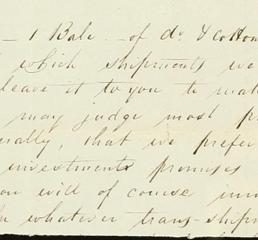 - 1 Bale - of do & cotton
which shipments we
leave it to you to
may judge most
that we prefer
investments promises
will of course
whatever trans-ship